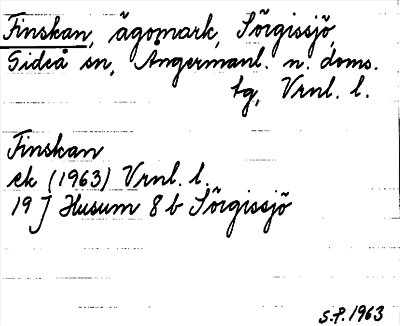 Finskan, ägomark, Sörgissjö,
Gideå sn, Ångermanl. n. doms.
tg, Vrnl. l.
Finskan
ek (1963) Vrnl. l.
19 J Husum 8 b Sörgissjö
S.P. 1963